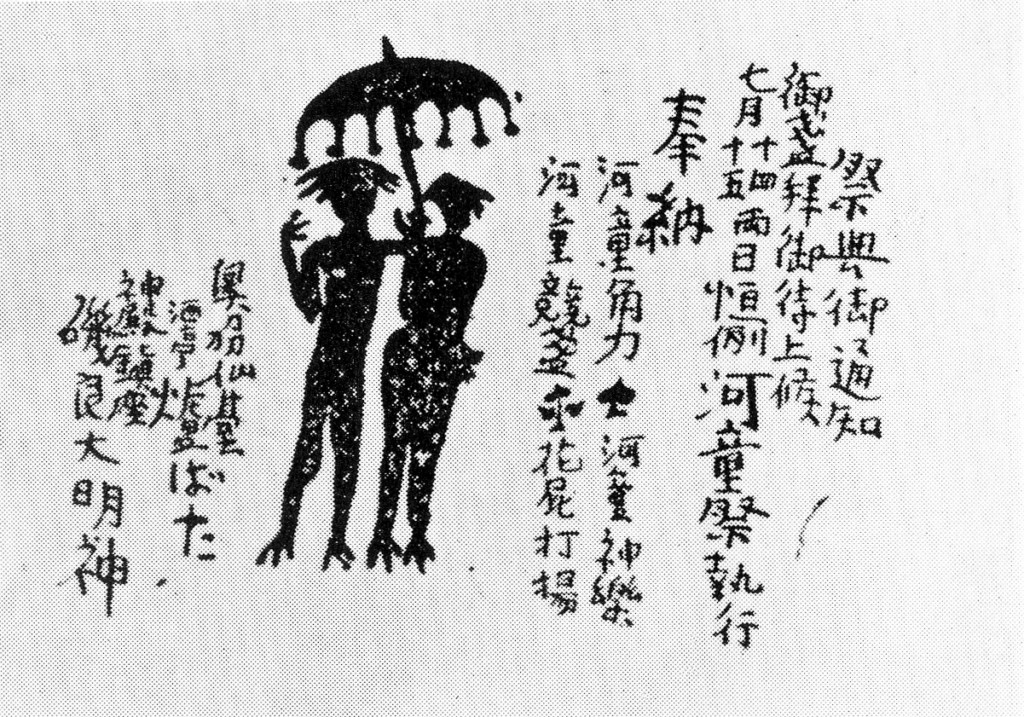 祭典御通知
御参拝御待上候
七月十四十五両日恒例河童祭執行
奉納
河童角力 河童神樂
河童競泳 花屁打揚
奥羽仙台
炉ばた
神殿鎮座
磯良大明神